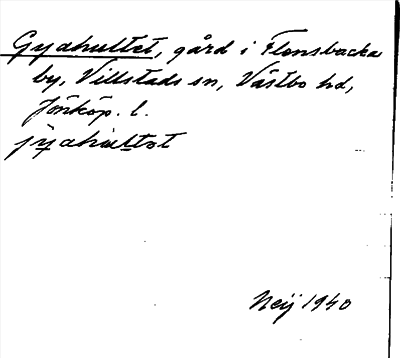 Gyahultet, gård i Flensbacka
by, Villstads sn, Västbo hd,
Jönköp. l.
jyahultet
Neij 1940